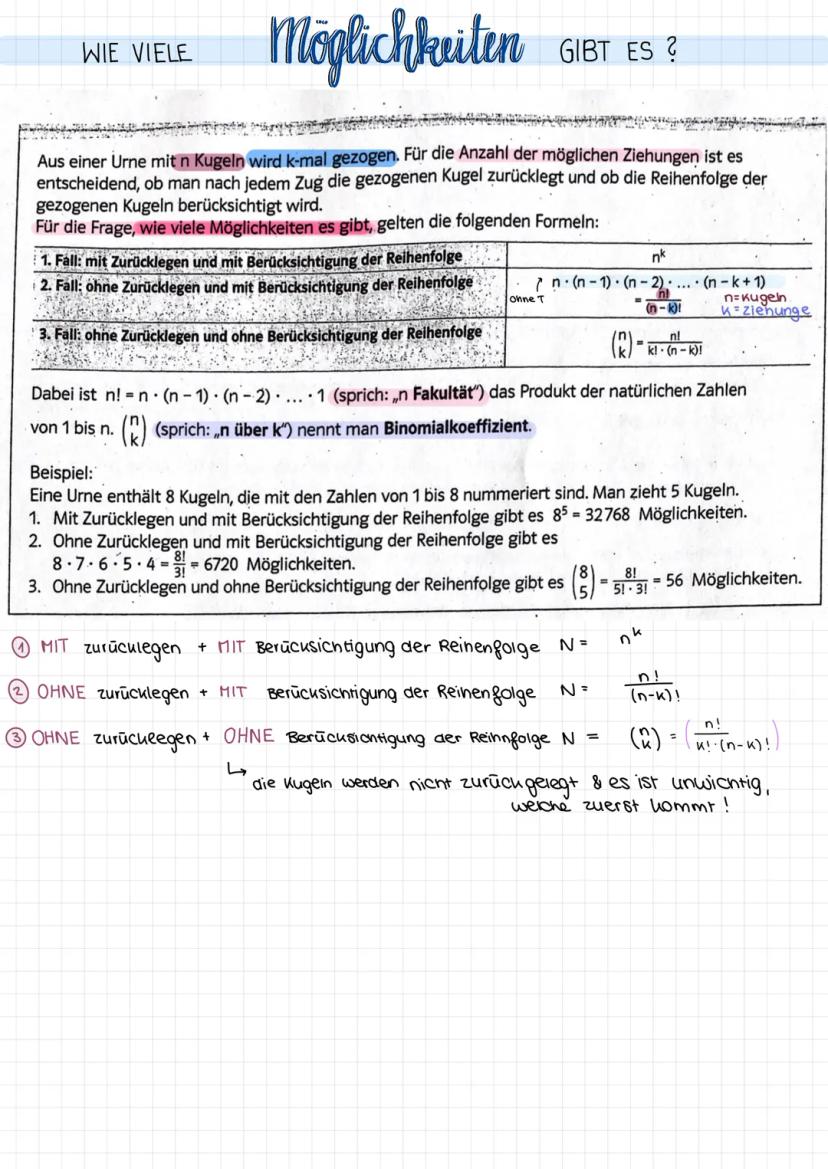 WIE VIELE Möglichkeiten GIBT ES ?
Aus einer Urne mit n Kugeln wird k-mal gezogen. Für die Anzahl der möglichen Ziehungen ist es
entscheidend, ob man nach jedem Zug die gezogenen Kugel zurücklegt und ob die Reihenfolge der
gezogenen Kugeln berücksichtigt wird.
Für die Frage, wie viele Möglichkeiten es gibt, gelten die folgenden Formeln:
1. Fall: mit Zurücklegen und mit Berücksichtigung der Reihenfolge nᵏ
2. Fall: ohne Zurücklegen und mit Berücksichtigung der Reihenfolge ↗ n · (n – 1) · (n – 2) · ... · (n – k + 1)
ohne T = n!/(n – k)! n=Kugeln
k=Ziehunge
3. Fall: ohne Zurücklegen und ohne Berücksichtigung der Reihenfolge (n k) = n!/(k! · (n – k)!)
Dabei ist n! = n · (n – 1) · (n – 2) · ... · 1 (sprich: „n Fakultät“) das Produkt der natürlichen Zahlen
von 1 bis n. (n k) (sprich: „n über k“) nennt man Binomialkoeffizient.
Beispiel:
Eine Urne enthält 8 Kugeln, die mit den Zahlen von 1 bis 8 nummeriert sind. Man zieht 5 Kugeln.
1. Mit Zurücklegen und mit Berücksichtigung der Reihenfolge gibt es 8⁵ = 32768 Möglichkeiten.
2. Ohne Zurücklegen und mit Berücksichtigung der Reihenfolge gibt es
8 · 7 · 6 · 5 · 4 = 8!/3! = 6720 Möglichkeiten.
3. Ohne Zurücklegen und ohne Berücksichtigung der Reihenfolge gibt es (8 5) = 8!/(5! · 3!) = 56 Möglichkeiten.
① MIT zurücklegen + MIT Berücksichtigung der Reihenfolge N = nᵏ
② OHNE zurücklegen + MIT Berücksichtigung der Reihenfolge N = n!/(n-k)!
③ OHNE zurücklegen + OHNE Berücksichtigung der Reihnfolge N = (n k) = (n!/(k!·(n-k)!))
↳ die Kugeln werden nicht zurückgelegt & es ist unwichtig,
welche zuerst kommt !